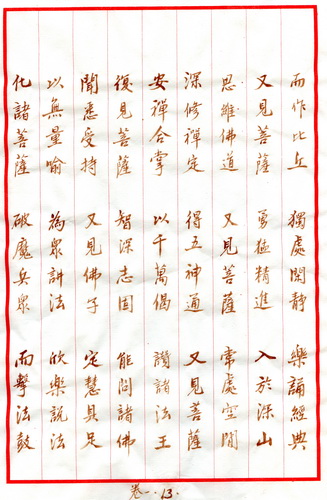 而作比丘 獨處閑靜 樂誦經典
又見菩薩 勇猛精進 入於深山
思維佛道 又見菩薩 常處空閒
深修禪定 得五神通 又見菩薩
安禪合掌 以千萬偈 讚諸法王
復見菩薩 智深志固 能問諸佛
聞悉受持 又見佛子 定慧具足
以無量喻 為衆講法 欣樂說法
化諸菩薩 破魔兵衆 而擊法鼓
卷一·13·